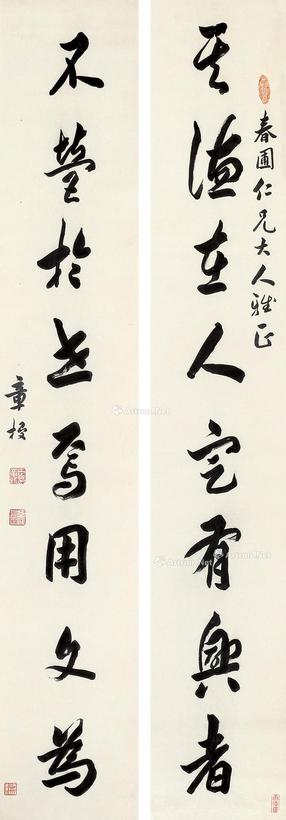 春圃仁兄大人雅正
其德在人定有興者
不營於世焉用文為
章梫
Artron.Net
Artron.Net
Artron.Net